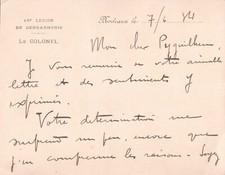 LÉGION
DE GENDARMERIE
LE COLONEL
Bordeaux le 7/6
Mon cher
Je vous remercie de votre aimable
lettre et des sentiments y
exprimés.
Votre détermination me
surprend un peu, encore que
j'en comprenne les raisons. Soyez